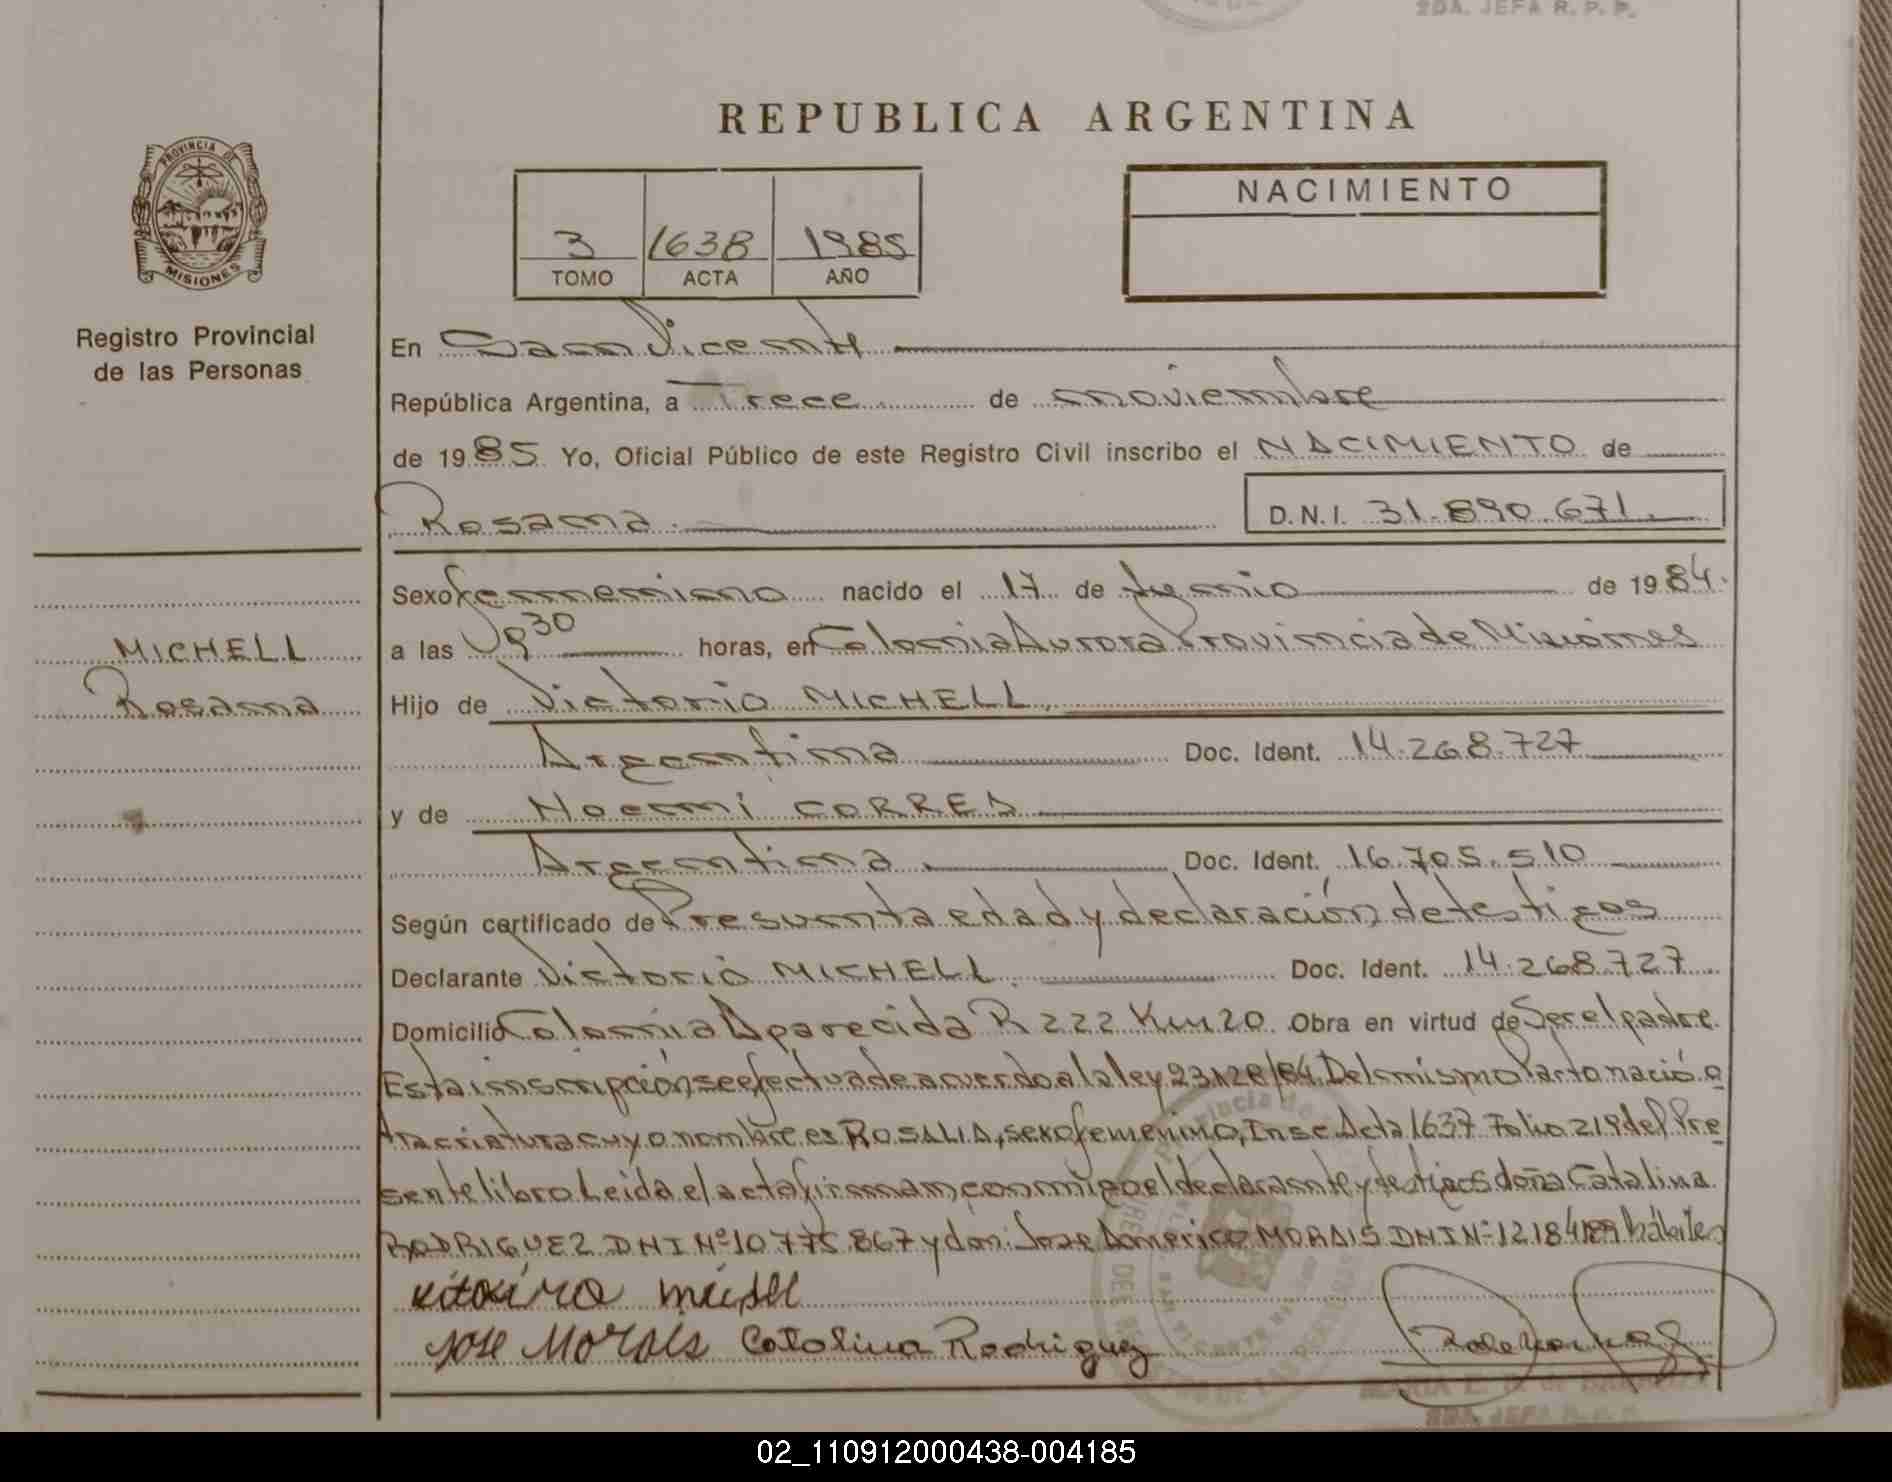 2DA. JEFA R. P. P.
REPUBLICA ARGENTINA
PROVINCIA DE
MISIONES
Registro Provincial
de las Personas
3 1638 1985
TOMO ACTA AÑO
NACIMIENTO
En San Vicente
República Argentina, a Trece de noviembre
de 1985 Yo, Oficial Público de este Registro Civil inscribo el NACIMIENTO de
Rosana D.N.I. 31.890.671
Sexo femenino nacido el 17 de Junio de 1984.
MICHELL
Rosana
a las horas, en Colonia Aurora Provincia de Misiones
Hijo de Victorio MICHELL
Argentina Doc. Ident. 14.268.727
y de Noemí CORREA
Argentina Doc. Ident. 16.705.510
Según certificado de Presunta edad y declaración de testigos
Declarante Victorio MICHELL Doc. Ident. 14.268.727
Domicilio Colonia Aparecida R 222 Km 20 Obra en virtud de Ser el padre.
Esta inscripción se efectua de acuerdo a la ley 23.128/84. Del mismo Parto nació o
tra criatura cuyo nombre es ROSALIA, sexo femenino, Insc. Acta 1637 Folio 219 del Pre
sente libro. Leida el acta firman conmigo el declarante y testigos doña Catalina
RODRIGUEZ DNI Nº 10.775.867 y don: Jose Americo MORAIS DNI Nº 12.184.189 hábiles
Jose Morais Catalina Rodriguez
2DA. JEFA R. P. P.
02_110912000438-004185